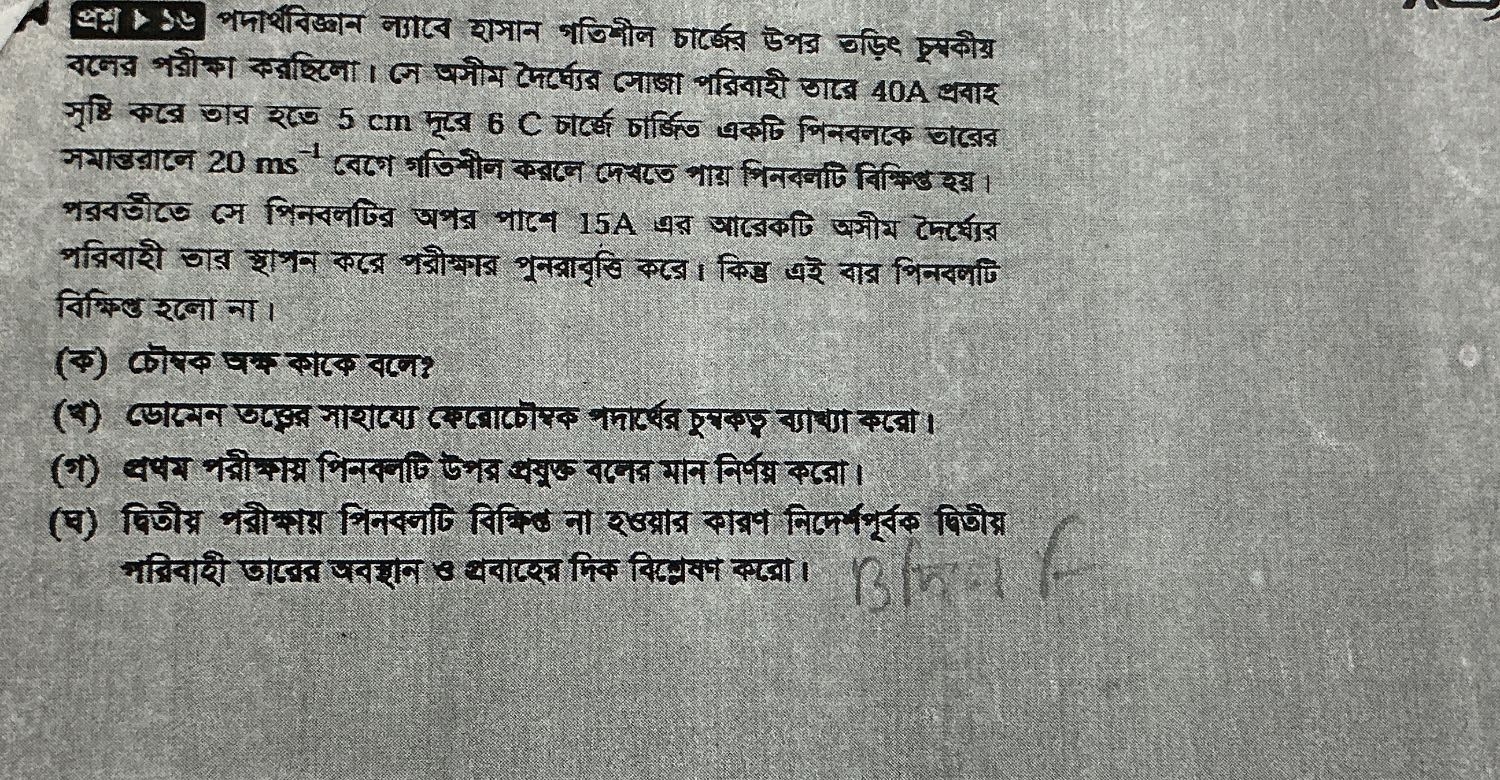 প্রশ্ন ▶ ১৬ পদার্থবিজ্ঞান ল্যাবে হাসান গতিশীল চার্জের উপর তড়িৎ চুম্বকীয়
বলের পরীক্ষা করছিলো। সে অসীম দৈর্ঘ্যের সোজা পরিবাহী তারে 40A প্রবাহ
সৃষ্টি করে তার হতে 5 cm দূরে 6 C চার্জে চার্জিত একটি পিনবলকে তারের
সমান্তরালে 20 ms⁻¹ বেগে গতিশীল করলে দেখতে পায় পিনবলটি বিক্ষিপ্ত হয়।
পরবর্তীতে সে পিনবলটির অপর পাশে 15A এর আরেকটি অসীম দৈর্ঘ্যের
পরিবাহী তার স্থাপন করে পরীক্ষার পুনরাবৃত্তি করে। কিন্তু এই বার পিনবলটি
বিক্ষিপ্ত হলো না।
(ক) চৌম্বক অক্ষ কাকে বলে?
(খ) ডোমেন তত্ত্বের সাহায্যে ফেরোচৌম্বক পদার্থের চুম্বকত্ব ব্যাখ্যা করো।
(গ) প্রথম পরীক্ষায় পিনবলটি উপর প্রযুক্ত বলের মান নির্ণয় করো।
(ঘ) দ্বিতীয় পরীক্ষায় পিনবলটি বিক্ষিপ্ত না হওয়ার কারণ নির্দেশপূর্বক দ্বিতীয়
পরিবাহী তারের অবস্থান ও প্রবাহের দিক বিশ্লেষণ করো।